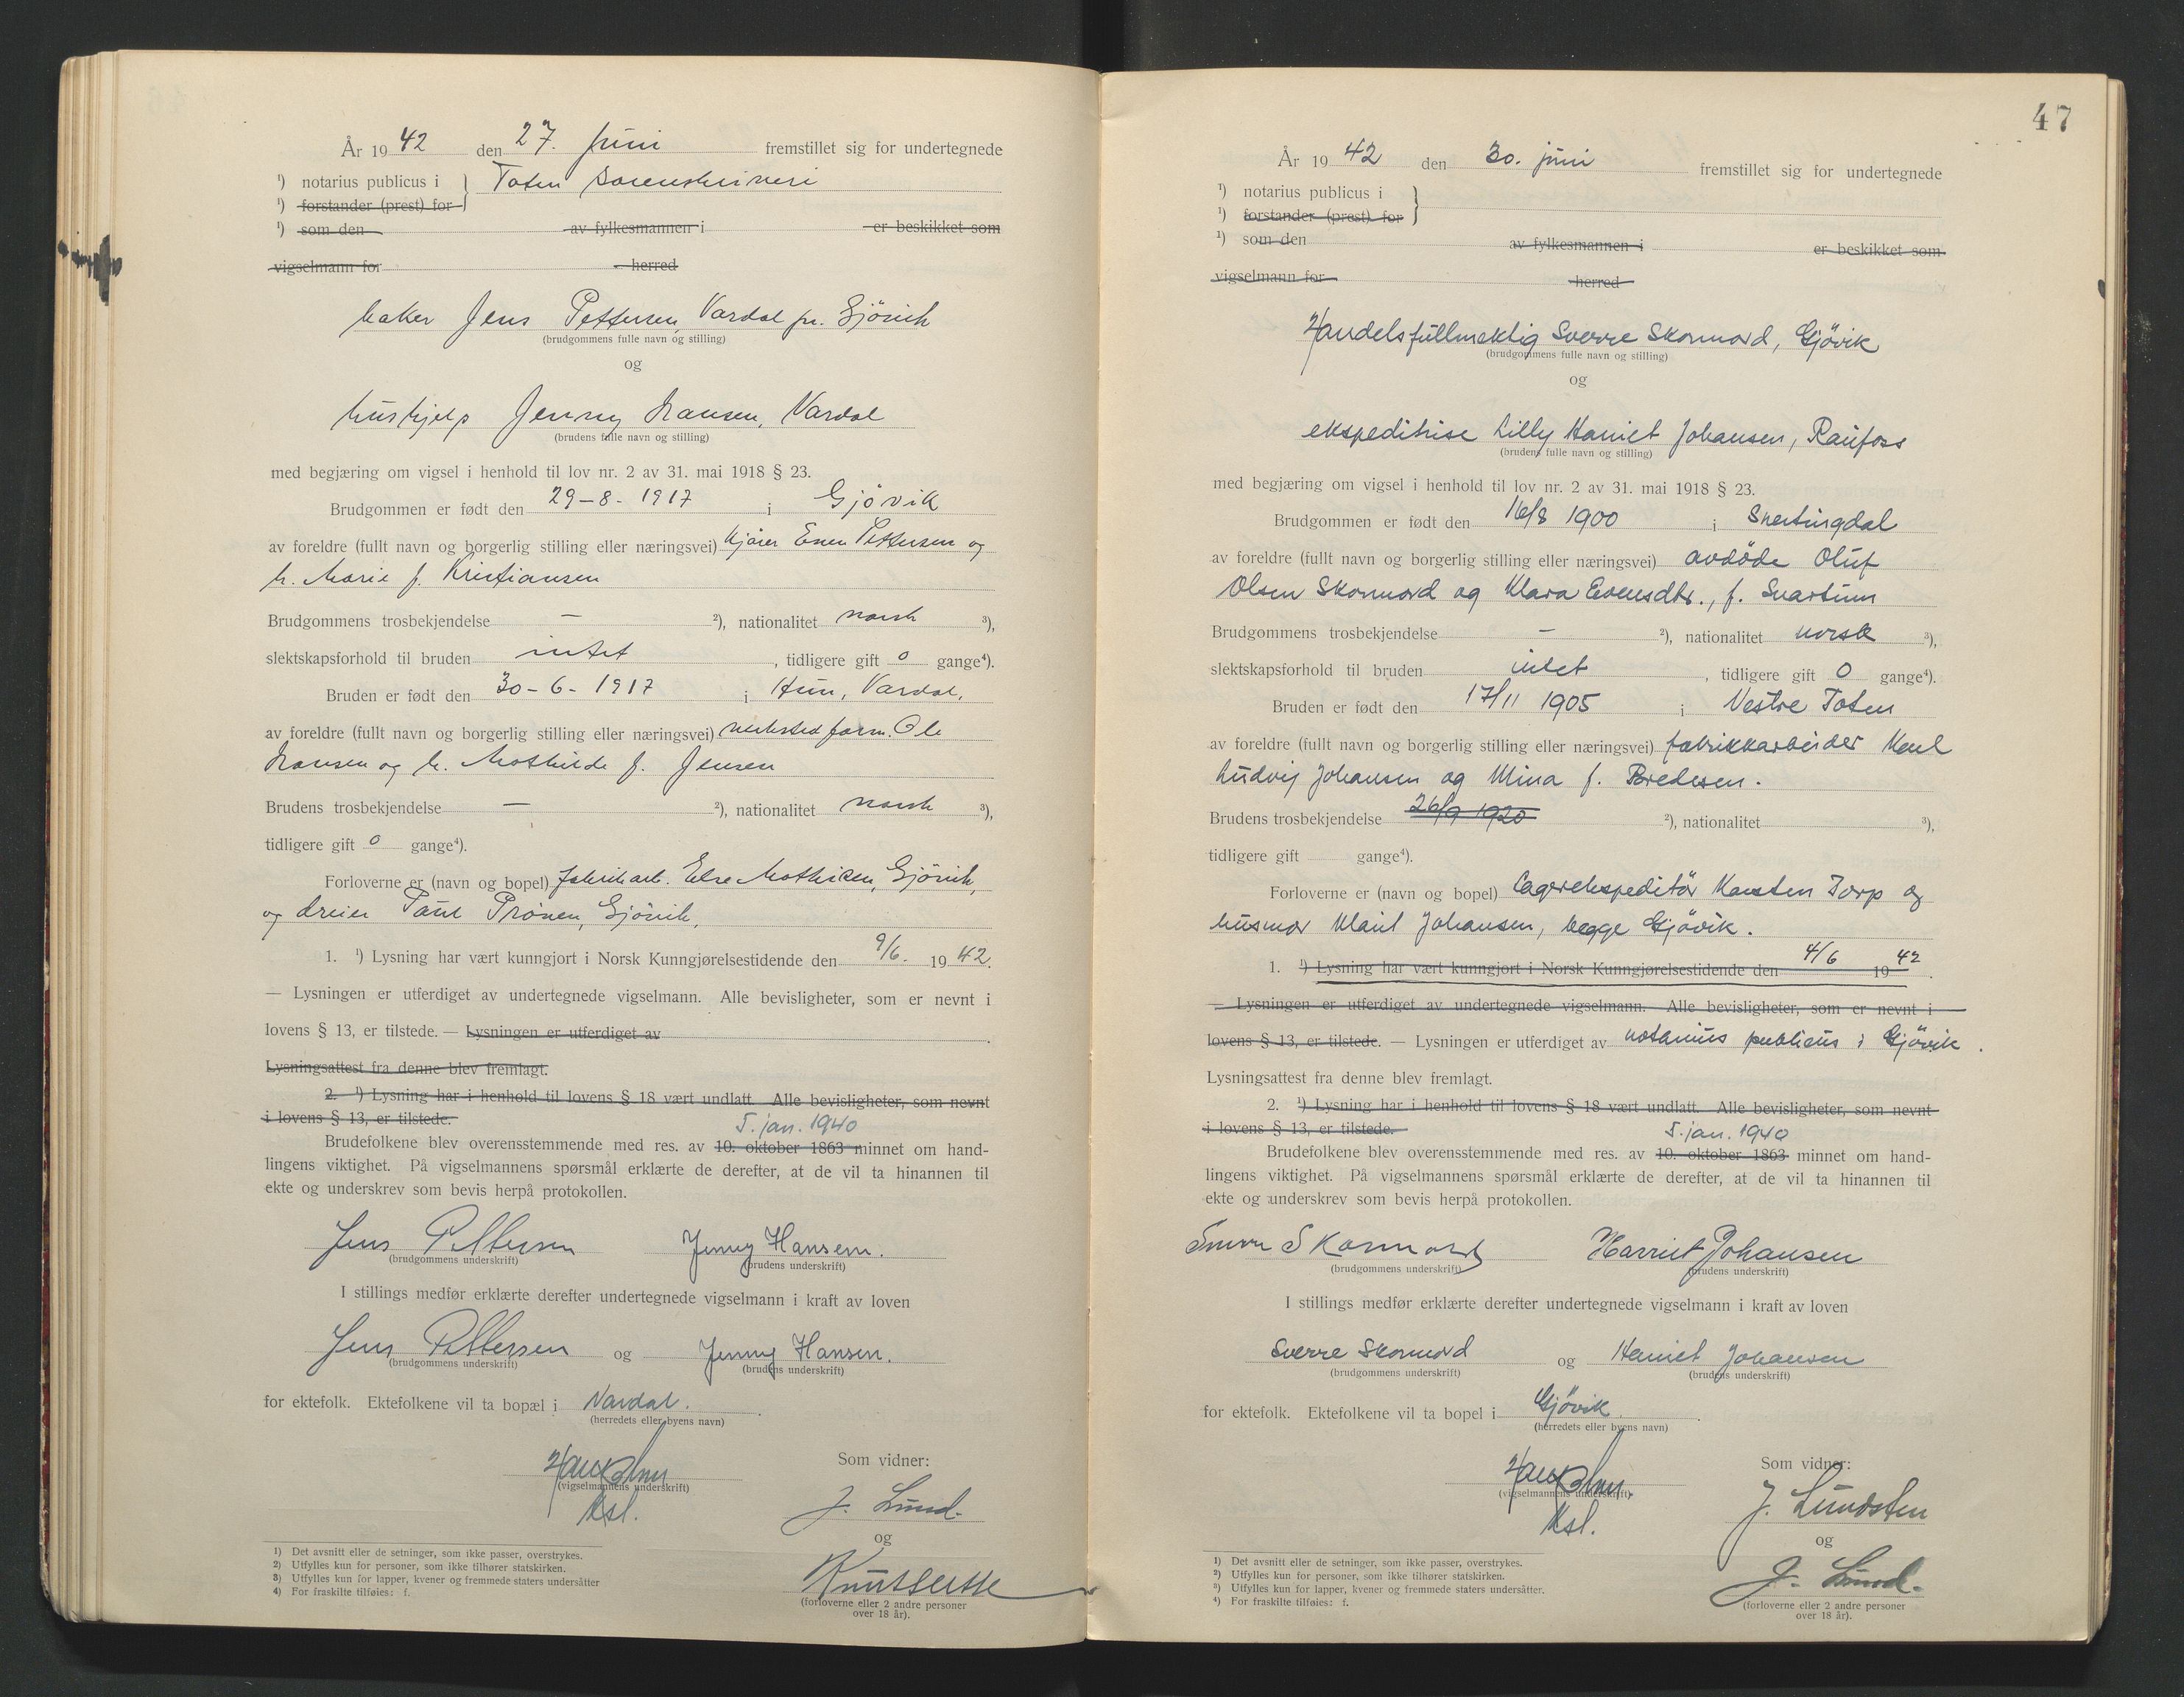 År 1942 den 27. Juni fremstillet sig for undertegnede
¹) notarius publicus i } Toten Sorenskriveri
¹) forstander (prest) for
¹) som den av fylkesmannen i er beskikket som
vigselmann for herred
baker Jens Pettersen, Vardal pr. Gjövik
(brudgommens fulle navn og stilling)
og
hushjelp Jenny Hansen, Vardal
(brudens fulle navn og stilling)
med begjæring om vigsel i henhold til lov nr. 2 av 31. mai 1918 § 23.
Brudgommen er født den 29-8-1917 i Gjövik
av foreldre (fullt navn og borgerlig stilling eller næringsvei) kjører Pettersen og
h. Marie f. Kristiansen
Brudgommens trosbekjendelse — ²), nationalitet norsk ³),
slektskapsforhold til bruden intet, tidligere gift 0 gange⁴).
Bruden er født den 30-6-1917 i Hun, Vardal,
av foreldre (fullt navn og borgerlig stilling eller næringsvei) verksted form. Ole
Hansen og h. Mathilde f. Jensen
Brudens trosbekjendelse — ²), nationalitet norsk ³),
tidligere gift 0 gange⁴).
Forloverne er (navn og bopel) fabrikarb. Else Mathisen, Gjövik,
og dreier Paul Prönen, Gjövik,
1. ¹) Lysning har vært kunngjort i Norsk Kunngjørelsestidende den 9/6. 1942.
— Lysningen er utferdiget av undertegnede vigselmann. Alle bevisligheter, som er nevnt i
lovens § 13, er tilstede. — Lysningen er utferdiget av .
Lysningsattest fra denne blev fremlagt.
2. ¹) Lysning har i henhold til lovens § 18 vært undlatt. Alle bevisligheter, som nevnt
i lovens § 13, er tilstede.
5. jan. 1940
Brudefolkene blev overensstemmende med res. av 10. oktober 1863 minnet om hand-
lingens viktighet. På vigselmannens spørsmål erklærte de derefter, at de vil ta hinannen til
ekte og underskrev som bevis herpå protokollen.
Jens Pettersen Jenny Hansen.
(brudgommens underskrift) (brudens underskrift)
I stillings medfør erklærte derefter undertegnede vigselmann i kraft av loven
Jens Pettersen og Jenny Hansen.
(brudgommens underskrift) (brudens underskrift)
for ektefolk. Ektefolkene vil ta bopæl i Vardal.
(herredets eller byens navn)
Som vidner:
(vigselmannens underskrift)
J. Lund.
og
(forloverne eller 2 andre personer
over 18 år).
¹) Det avsnitt eller de setninger, som ikke passer, overstrykes.
²) Utfylles kun for personer, som ikke tilhører statskirken.
³) Utfylles kun for lapper, kvener og fremmede staters undersåtter
⁴) For fraskilte tilføies: f.
47
År 1942 den 30. juni fremstillet sig for undertegnede
¹) notarius publicus i }
¹) forstander (prest) for
¹) som den av fylkesmannen i er beskikket som
vigselmann for herred
Handelsfullmektig Sverre Skonnord, Gjövik
(brudgommens fulle navn og stilling)
og
ekspeditrise Lilly Harriet Johansen, Raufoss
(brudens fulle navn og stilling)
med begjæring om vigsel i henhold til lov nr. 2 av 31. mai 1918 § 23.
Brudgommen er født den 16/8 1900 i Snertingdal
av foreldre (fullt navn og borgerlig stilling eller næringsvei) avdöde Oluf
Olsen Skonnord og Klara Evensdtr., f. Svartum
Brudgommens trosbekjendelse — ²), nationalitet norsk ³),
slektskapsforhold til bruden intet, tidligere gift 0 gange⁴).
Bruden er født den 17/11 1905 i Vestre Toten
av foreldre (fullt navn og borgerlig stilling eller næringsvei) fabrikkarbeider Karl
Ludvig Johansen og Mina f. Bredesen.
Brudens trosbekjendelse 26/9 1920 ²), nationalitet ³),
tidligere gift gange⁴).
Forloverne er (navn og bopel) Lagerekspeditör Karsten Torp og
husmor Johansen, begge Gjövik.
1. ¹) Lysning har vært kunngjort i Norsk Kunngjørelsestidende den 4/6 1942.
— Lysningen er utferdiget av undertegnede vigselmann. Alle bevisligheter, som er nevnt i
lovens § 13, er tilstede. — Lysningen er utferdiget av notarius publicus i Gjövik.
Lysningsattest fra denne blev fremlagt.
2. ¹) Lysning har i henhold til lovens § 18 vært undlatt. Alle bevisligheter, som nevnt
i lovens § 13, er tilstede.
5. jan. 1940
Brudefolkene blev overensstemmende med res. av 10. oktober 1863 minnet om hand-
lingens viktighet. På vigselmannens spørsmål erklærte de derefter, at de vil ta hinannen til
ekte og underskrev som bevis herpå protokollen.
Sverre Skonnord Harriet Johansen
(brudgommens underskrift) (brudens underskrift)
I stillings medfør erklærte derefter undertegnede vigselmann i kraft av loven
Sverre Skonnord og Harriet Johansen
(brudgommens underskrift) (brudens underskrift)
for ektefolk. Ektefolkene vil ta bopel i Gjövik.
(herredets eller byens navn)
Som vidner:
(vigselmannens underskrift)
J. Lundsten
og
J. Lund.
(forloverne eller 2 andre personer
over 18 år).
¹) Det avsnitt eller de setninger, som ikke passer, overstrykes.
²) Utfylles kun for personer, som ikke tilhører statskirken.
³) Utfylles kun for lapper, kvener og fremmede staters undersåtter.
⁴) For fraskilte tilføies: f.